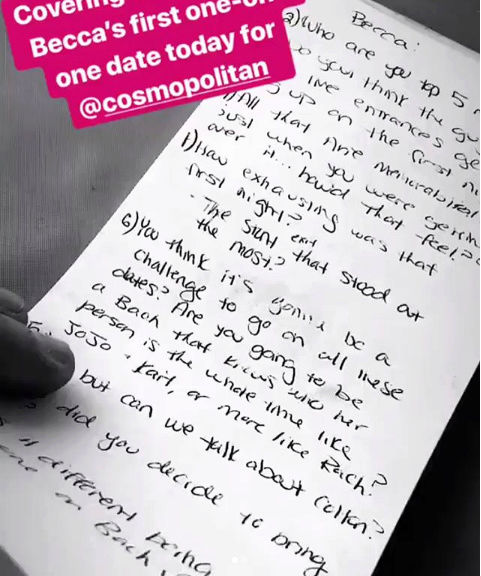 Covering
Becca's first one-on-
one date today for
@cosmopolitan
Becca:
2) Who are you top 5
you think the
live entrances
up on the first
All that time
just when you were
over it... how'd that feel?
1) How exhausting was that
first night?
- The stunt that stood out
exit
the most?
6) You think it's gonna be a
challenge to go on all these
dates? Are you going to be
a Bach that knows who her
person is the whole time like
JoJo + Kait, or more like Rach?
but can we talk about Colton?
did you decide to bring
different being
on Bach